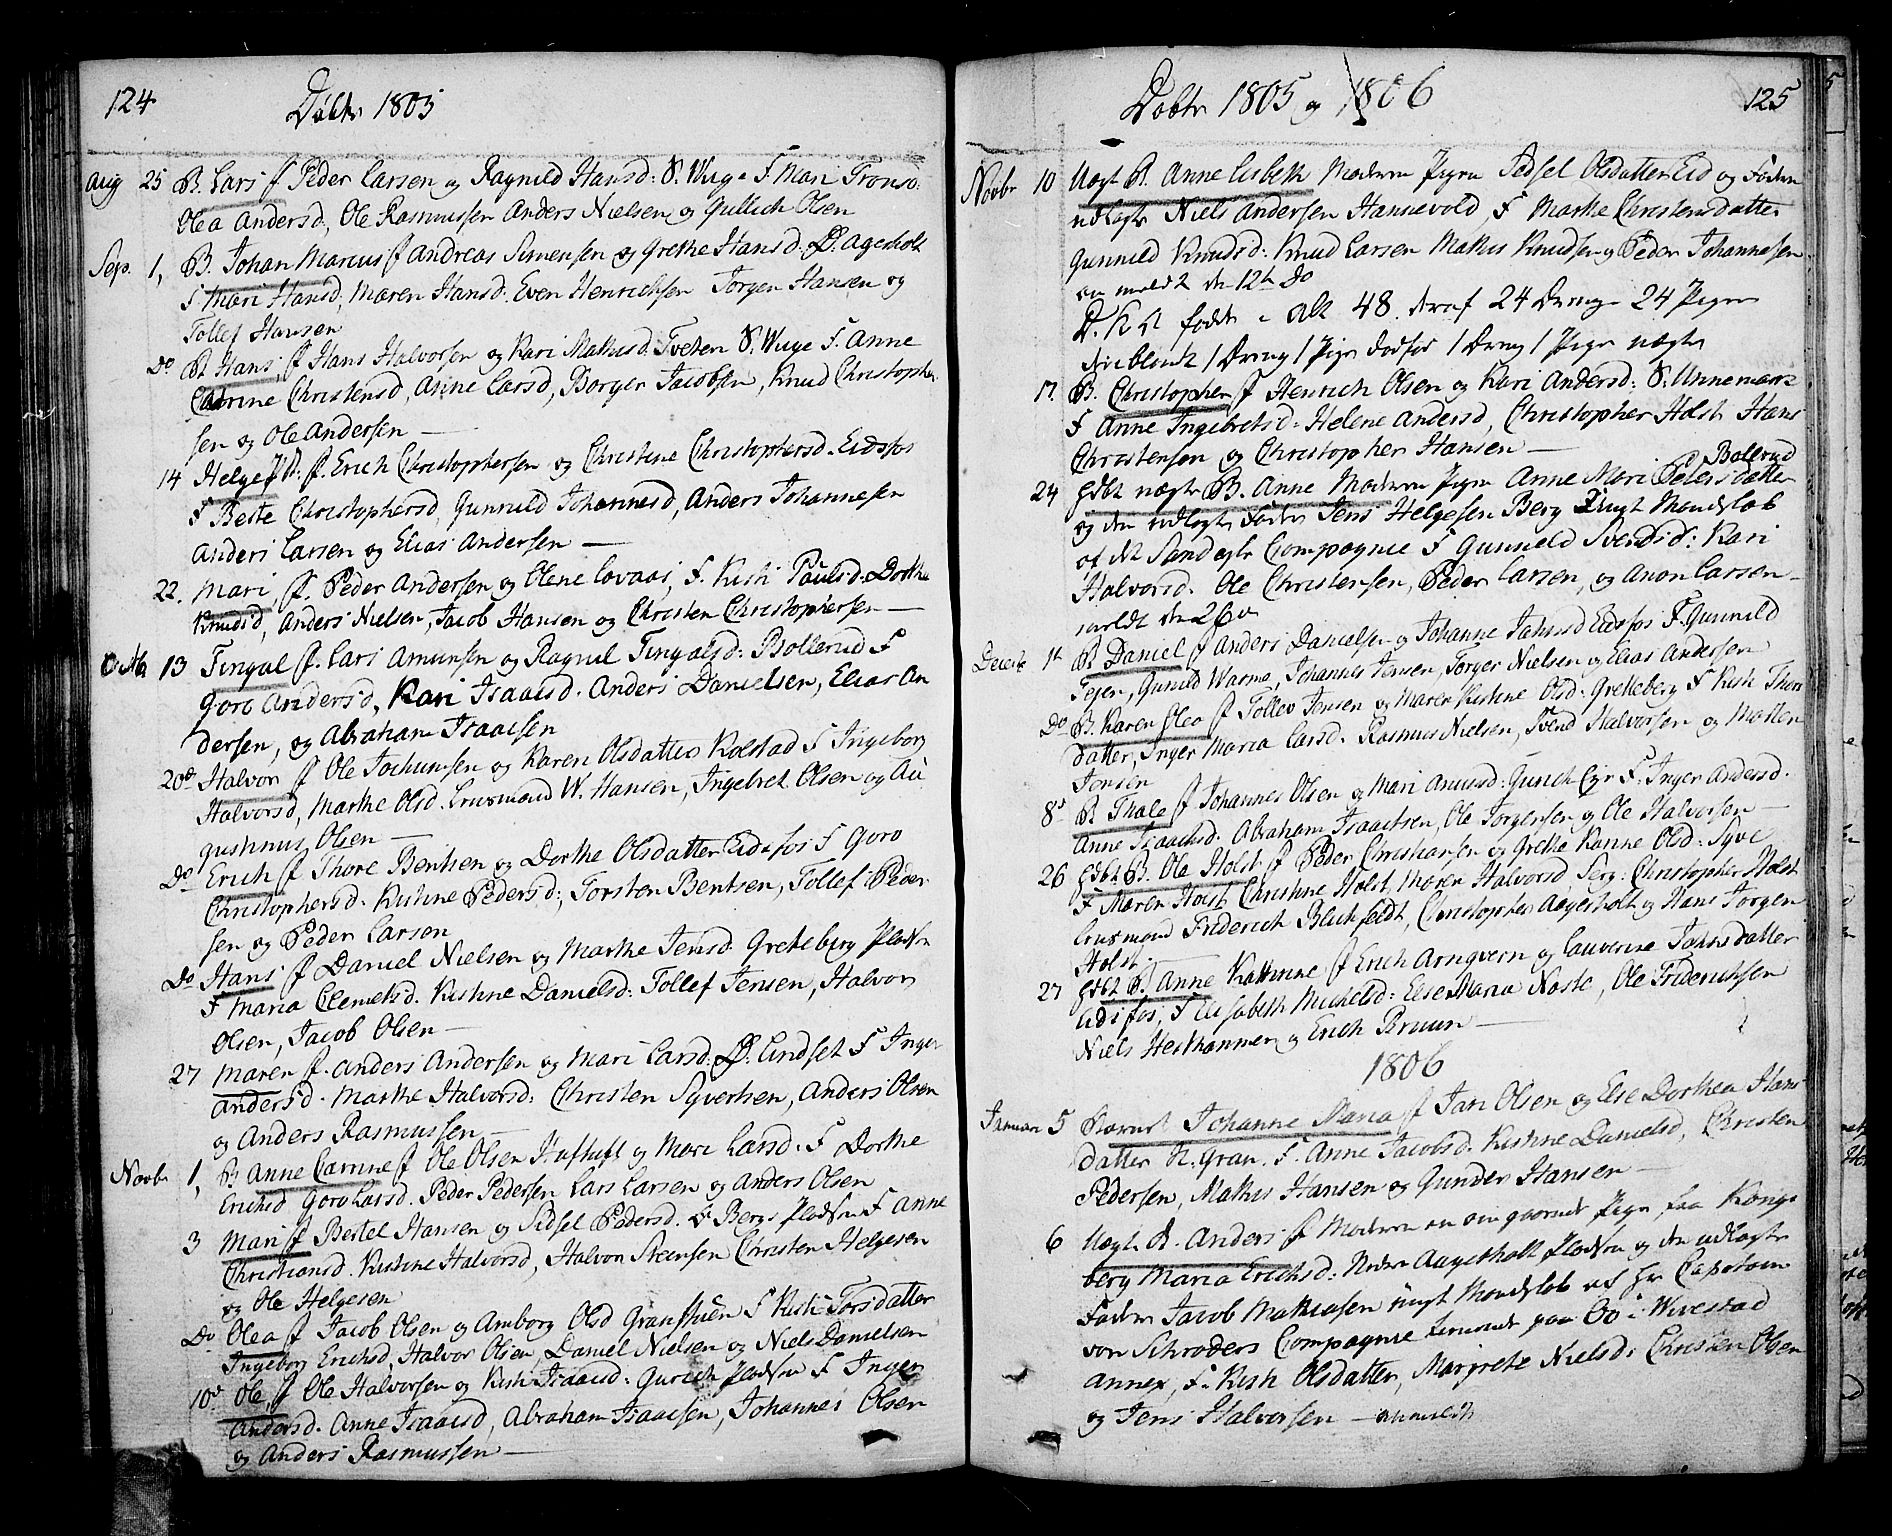 124
Döbte 1805
Aug 25 B. Lars f Peder Larsen og Ragnild Hansd: S. Wuge F Mari Tronsd.
Olea Andersd, Ole Rasmussen Anders Nielsen og Gullich Olsen
Sep. 1, B. Johan Marcus f Andreas Simensen og Grethe Hansd. D. Ageholt
F Mari Hansd, Maren Hansd. Even Henrichsen Jörgen Hansen og
Tollef Hansen
Do B. Hans, f Hans Halvorsen og Kari Mathisd: Tveten S. Wuge F. Anne
Catrine Christensd, Anne Larsd, Borger Jacobsen, Knud Christopher
sen og Ole Andersen —
14 Helge f. Erich Christophersen og Christine Christophersd. Eidsfos
F Berte Christophersd, Gunnild Johannesd, Anders Johannesen
Anders Larsen og Elias Andersen —
22. Mari, f. Peder Andersen og Olene Lovaas, F. Kisti Paulsd. Dorthe
Knudsd, Anders Nielsen, Jacob Hansen og Christen Christophersen —
Octb 13 Tingul f. Lars Amunsen og Ragnil Tingulsd: Bollerud F
Goro Andersd, Kari Isaacsd. Anders Danielsen, Elias An
dersen, og Abraham Isaacsen
20de Halvor f Ole Jochumsen og Karen Olsdatter Kolstad F Ingeborg
Halvorsd, Marthe Olsd. Crusmand W. Hansen, Ingebret Olsen og Au
gustinus Olsen —
Do Erich f Thore Bentsen og Dorthe Olsdatter Eidsfos F Goro
Christophersd. Kistine Pedersd: Torsten Bentsen, Tollef Peder
sen og Peder Larsen
Do Hans f Daniel Nielsen og Marthe Jensd. Greteberg Pladsen
F Maria Clemetsd. Kistine Danielsd: Tollef Jensen, Halvor
Olsen, Jacob Olsen —
27 Maren f. Anders Andersen og Mari Larsd: D. Lindset F Inger
Andersd. Marthe Halvorsd: Christen Syvertsen, Anders Olsen
og Anders Rasmussen —
Novbr 1, B Anne Catrine f Ole Olsen Huftuft og Mari Larsd. F Dorthe
Erichsd Goro Larsd. Peder Pedersen Lars Larsen og Anders Olsen
3 Mari f Bertel Hansen og Sidsel Pedersd. Bergs Pladsen F Anne
Christiansd. Kistine Halvorsd, Halvor Steensen Christen Helgesen
og Ole Helgesen
Do Olea f Jacob Olsen og Amborg Olsd F Kisti Torsdatter
Ingeborg Erichsd, Halvor Olsen, Daniel Nielsen og Niels Danielsen
10de Ole, f Ole Halvorsen og Kisti Isaacsd: Gurich Pladsen F Inger
Andersd. Anne Isaacsd, Abraham Isaacsen, Johannes Olsen
og Anders Rasmussen —
Döbte 1805 og 1806
125
Novbr 10 Uægt B. Anne Lisbeth Moderen Pigen Sidsel Olsdatter Eid og Faderen
udlagte Niels Andersen Hannevold, F Marthe Christensdatter
Gunnild Knudsd: Knud Larsen Mathis Knudsen og Peder Johannesen
anmeldt den 12te Do
födte i alt 48. deraf 24 Drenge 24 Piger
deriblandt 1 Dreng 1 Pige dödfödt 1 Dreng 1 Pige uægte
17. B. Christopher f Henrich Olsen og Kari Andersd: S: Unnemark
F Anne Ingebretsd: Helene Andersd, Christopher Holst Hans
Christensen og Christopher Hansen —
24 hdbt uægte B. Anne Moderen Pigen Anne Mari Petersdatter Bollerud
og den udlagte Fader Jens Helgesen Berg Lingt Mandskab
af det Compagnie F Gunneld Svendsd: Kari
Halvorsd. Ole Christensen, Peder Larsen, og Anon Larsen —
meldt den 26de
Decbr 1te B. Daniel f Anders Danielsen og Johanne Eidsfos F. Gunnild
Tejen, Gunild Warme, Johannes Jensen, Torger Nielsen og Elias Andersen
Do B. Karen Olea f Tollev Jensen og Maren Kistine Olsd: Greteberg F Kisti Thors
datter, Inger Maria Larsd. Rasmus Nielsen, Svend Halvorsen og Morten
Jensen
8de B. Thale f Johannes Olsen og Mari Amusd: Gurich Eje F: Inger Andersd.
Anne Isaacsd. Abraham Isaachsen, Ole Jörgensen og Ole Halvorsen —
26 hdbt B. Ole Holst f Peder Christiansen og Grethe Karine Olsd: Syve
F Maren Holst Christine Holst, Maren Halvorsd, Serg: Christopher Holst
Crusmand Friderich Blichfeldt, Christopher Aagerholt og Hans Jörgen
Holst. —
27 hdbt B. Anne Kathrine f Erich Arnqvern og Laverine Johnsdatter
Eidsfos, F Elisabeth Michelsd: Else Maria Næste, Ole Friderichsen
Niels Hesthammer og Erich Bruun —
1806
Januari 5 Johanne Maria f Jan Olsen og Else Dorthea Hans
datter N: Gran. F. Anne Jacobsd. Kistine Danielsd, Christen
Pedersen, Mathis Hansen og Gunder Hansen —
6 Uægte B. Anders f Moderen en Pige fra Kongs
berg Maria Erichsd: Nedre Aagerholt Pladsen og den udlagte
Fader Jacob Mathiasen ungt Mandskab af Hr Capetain
von Schröders Compagnie paa Oö i Wivestad
Annex, F. Kisti Olsdatter, Margrete Nielsd: Christen Olsen
og Jens Halvorsen — anmeldt